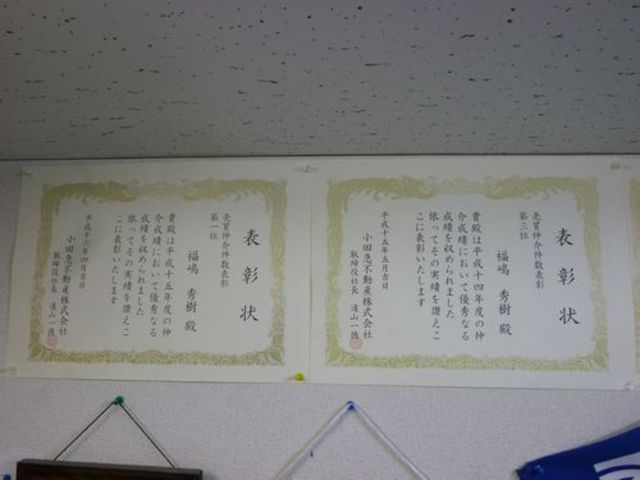 表彰状
売買仲介件数表彰
第三位
福嶋 秀樹 殿
貴殿は平成十四年度の仲
介成績において優秀なる
成績を収められました
依ってその実績を讃えこ
こに表彰いたします
平成十五年五月吉日
小田急不動産株式会社
取締役社長 遠山一徳
表彰状
売買仲介件数表彰
第一位
福嶋 秀樹 殿
貴殿は平成十五年度の仲
介成績において優秀なる
成績を収められました
依ってその実績を讃えこ
こに表彰いたします
平成十六年四月吉日
小田急不動産株式会社
取締役社長 遠山一徳